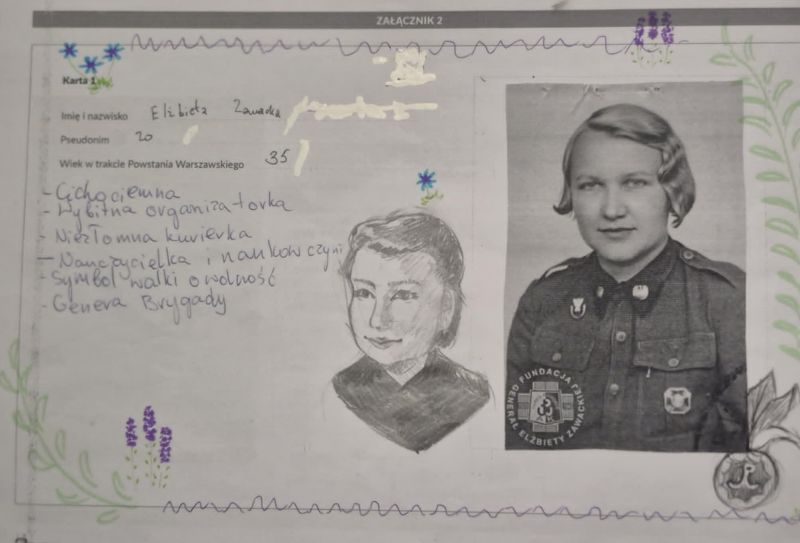 ZAŁĄCZNIK 2
Karta 1
Imię i nazwisko Elżbieta Zawacka
Pseudonim zo
Wiek w trakcie Powstania Warszawskiego 35
- Cichociemna
- Wybitna organizatorka
- Niezłomna kurierka
- Nauczycielka i naukowczyni
- Symbol walki o wolność
- Genera Brygady
FUNDACJA GENERAŁ ELŻBIETY ZAWACKIEJ